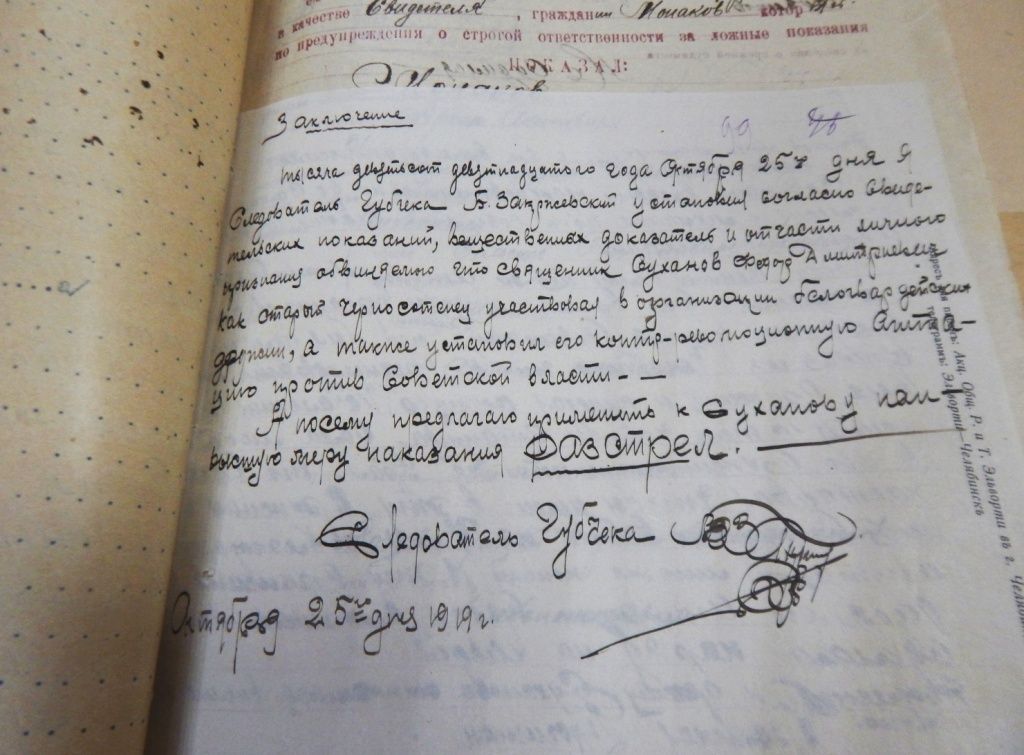 в качестве Свидетеля, граждан
по предупреждения о строгой ответственности за ложные показания
ПОКАЗАЛ:
Заключение
99 46
Тысяча девятьсот девятнадцатого года Октября 25го дня Я
Следователь Губчека Б. Закржевский установил согласно свиде-
тельских показаний, вещественных доказатель и отчасти личного
признания обвиняемого что священник Суханов Федор Дмитриевич
как старый черносотенец участвовал в организации белогвардейских
дружин, а также установил его контр-революционную агита-
цию против Советской власти - —
А посему предлагаю применить к Суханову наи-
высшую меру наказания Расстрел. —
Следователь Губчека
Октября 25го дня 1919 г.
Акц. Общ. Р. и Т. Эльворти въ г.
Эльворти—Челябинскъ